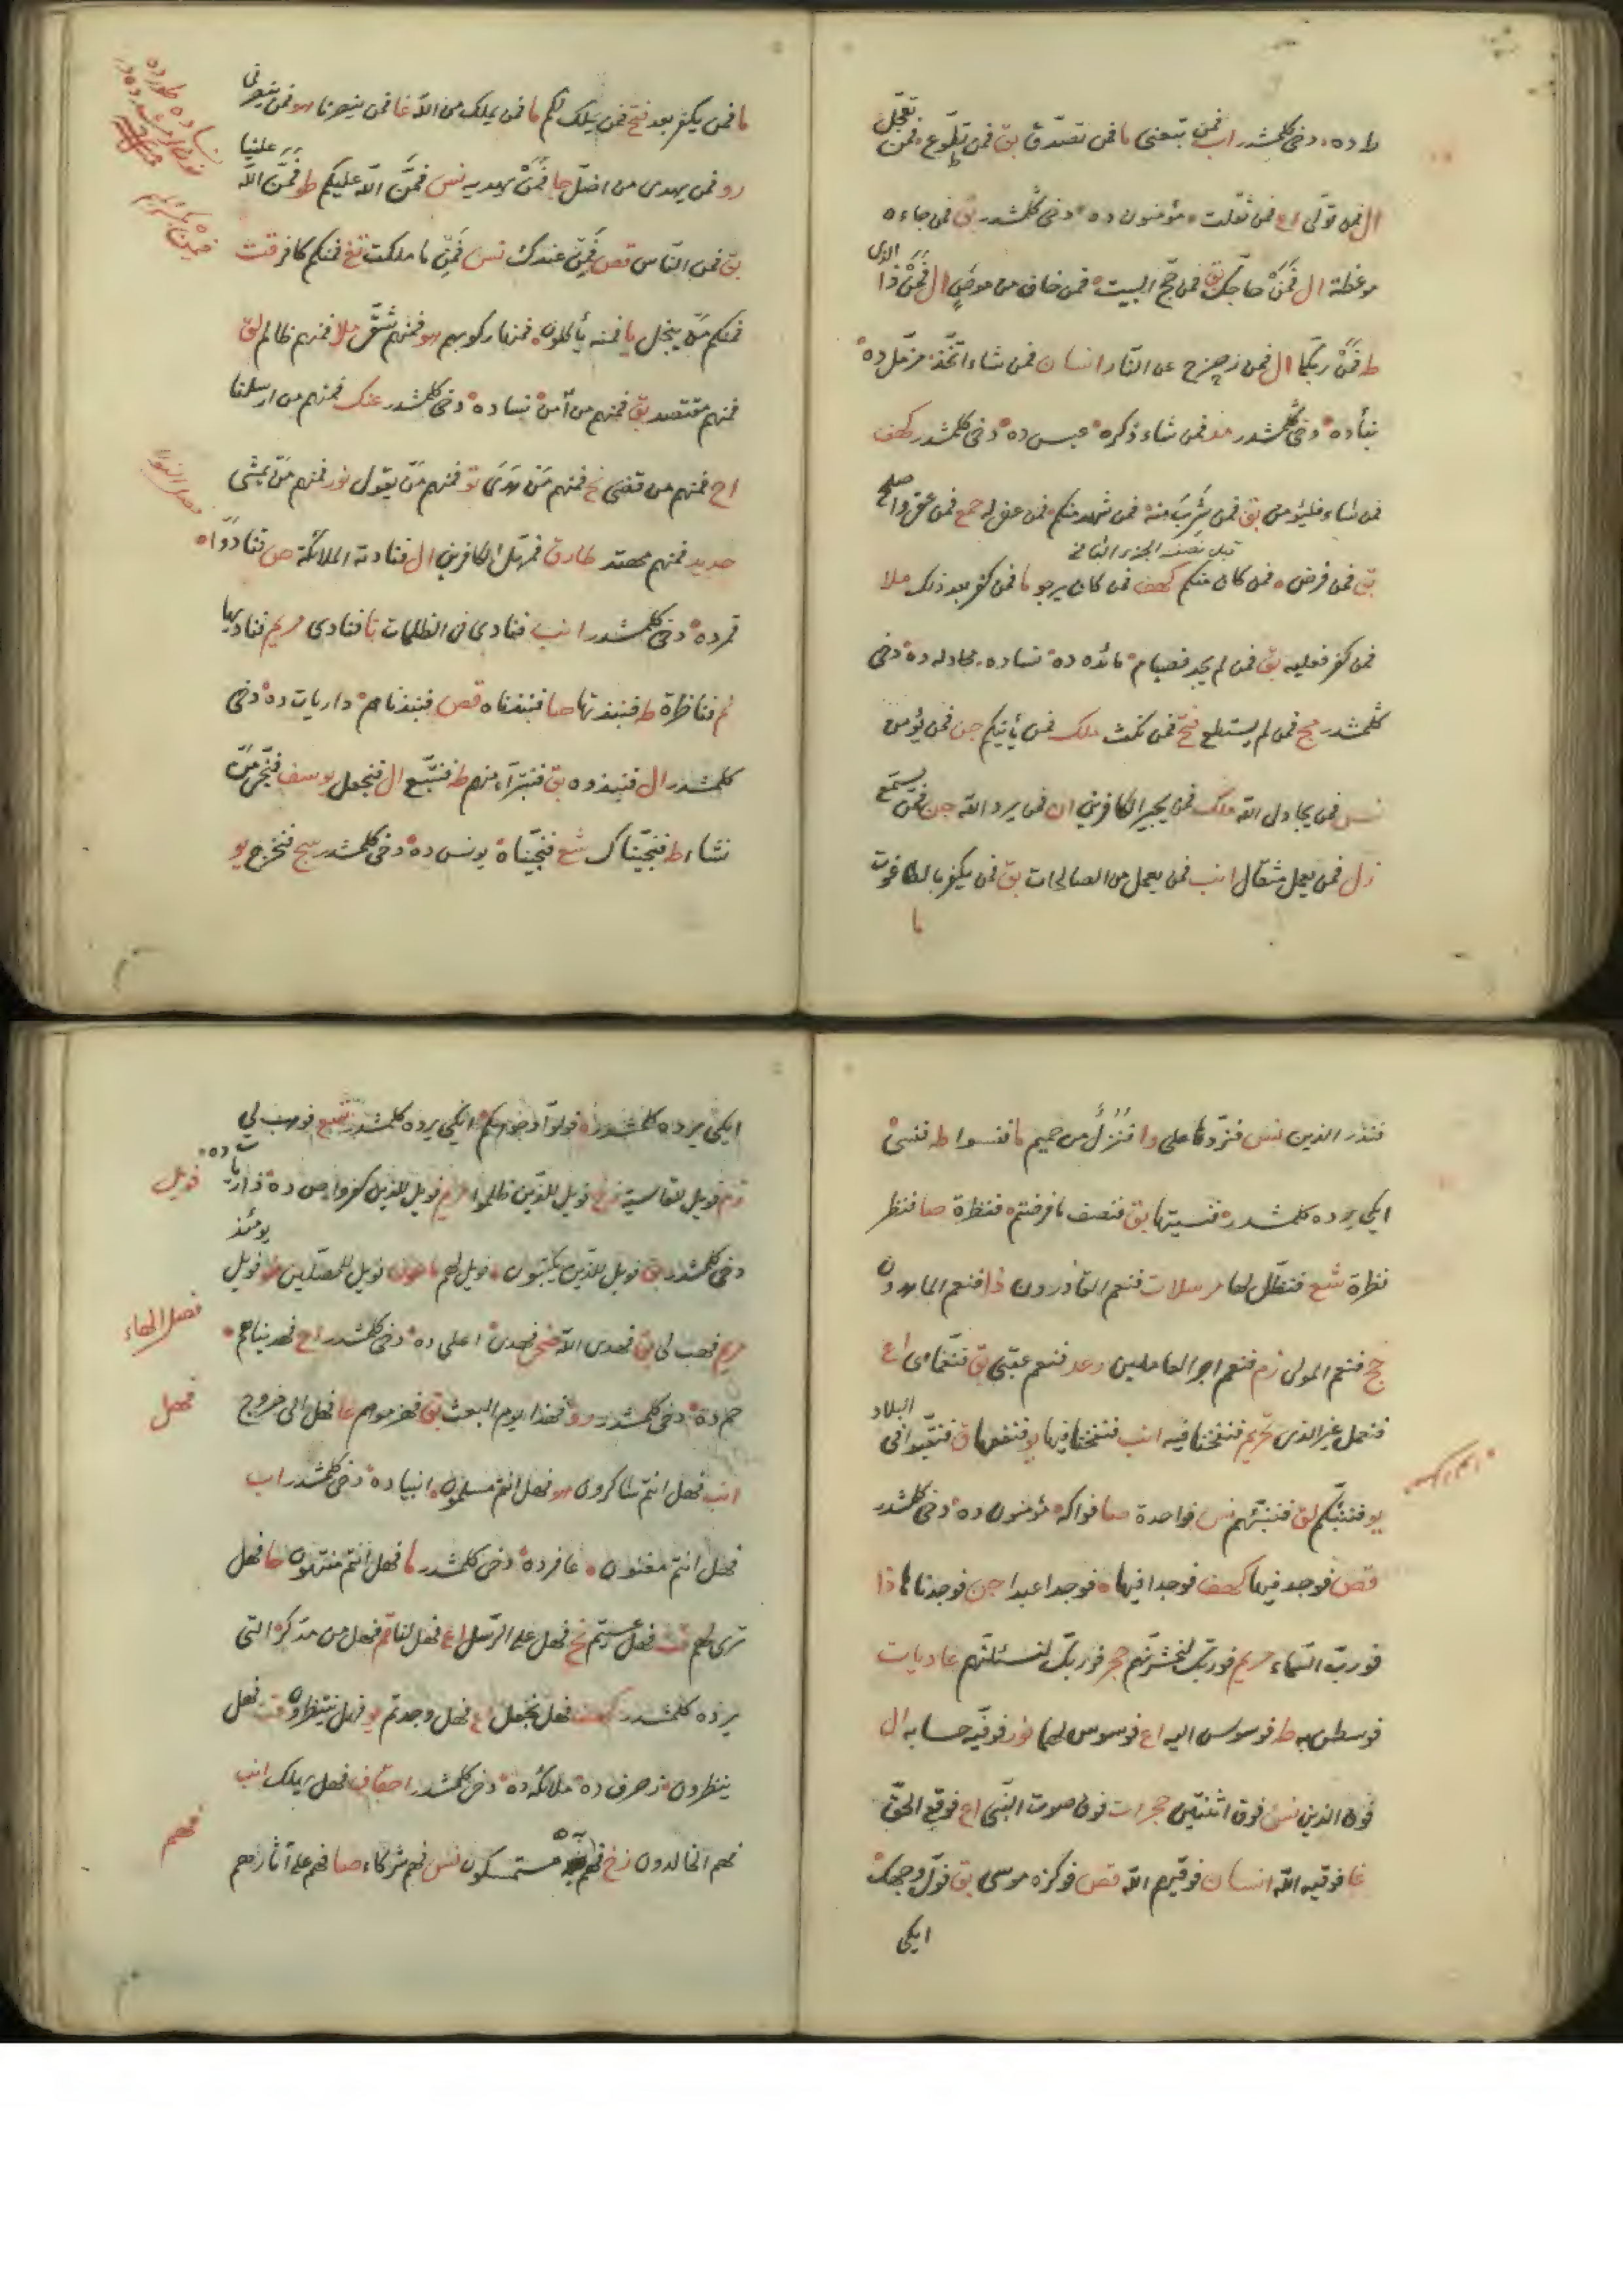 ط ده دخی كلمشدر اب فمن تبعنی ما فمن تصدق بق فمن تطوع فمن تعجل
ال فمن تولی اع فمن ثقلت مؤمنون ده دخی كلمشدر بق فمن جاءه
موعظة ال فمن حاجك بق فمن حج البيت فمن خاف من موص ال فمن ذا الذی
ط فمن ربكما ال فمن زحزح عن النار انسان فمن شاء اتخذ مزمل ده
نبأده دخی كلمشدر مد فمن شاء ذكره عبس ده دخی كلمشدر كهف
فمن شاء فليؤمن بق فمن شرب منه فمن شهد منكم فمن عفی له حمع فمن عفی واصلح
قبل نصف الجزء الثانی
بق فمن فرض فمن كان منكم كهف فمن كان يرجو ما فمن كفر بعد ذلك ملا
فمن كفر فعليه بق فمن لم يجد فصيام مائده ده نساده مجادله ده دخی
كلمشدر مج فمن لم يستطع فتح فمن نكث ملك فمن يأتيكم جن فمن يؤمن
نس فمن يجادل الله ملك فمن يجير الكافرين ان فمن يرد الله جن فمن يستمع
زل فمن يعمل مثقال انب فمن يعمل من الصالحات بق فمن يكفر بالطاغوت
ما
ما فمن يكفر بعد فتح فمن يملك لكم ما فمن يملك من الله غا فمن ينصرنا هو فمن ينصرنی
رو فمن يهدی من اضل جا فمن يهديه نس فمن الله عليكم ط فمن الله علينا
بق فمن الناس قص فمن عندك نس فمن ما ملكت تغ فمنكم كافر قت
فمنكم من يبخل يا فمنه يأكلون فمنها ركوبهم هو فمنهم شقی ملا فمنهم ظالم لق
فمنهم مقتصد بق فمنهم من آمن نساده دخی كلمشدر عنك فمنهم من ارسلنا
اح فمنهم من قضی نح فمنهم من هدی تو فمنهم من يقول نور فمنهم من يمشی
حديد فمنهم مهتد طارق فمهل الكافرين ال فنادته الملائكة ص فنادوا
قمرده دخی كلمشدر انب فنادی فی الظلمات نا فنادی مريم فناديها
نم فناظرة ط فنبذتها صا فنبذناه قص فنبذناهم داريات ده دخی
كلمشدر ال فنبذوه بق فنتبرأ منهم ط فنتبع ال فنجعل يوسف فنجی من
نشاء ط فنجيناك شع فنجيناه يونس ده دخی كلمشدر سج فنخرج يو
فنذر الذين نس فنردها علی وا فنزل من حميم ما فنسوا ط فنسی
ايكی يرده كلمشدر فنسيتها بق فنصف ما فرضتم فنظرة صا فنظر
نظرة شع فنظل لها مرسلات فنعم القادرون ذا فنعم الماهدون
حج فنعم المولی زم فنعم اجر العاملين رعد فنعم عقبی بق فنعما هی اع
فنعمل غير الذی تحريم فنفخنا فيه انب فنفخنا فيها يو فنفعها ق فنقبوا فی البلاد
يو فننبئكم لق فننبئهم نس فواحدة صا فواكه مؤمنون ده دخی كلمشدر
قص فوجد فيها كهف فوجدا فيها فوجدا عبدا جن فوجدناها ذا
فورب السماء مريم فوربك لنحشرنهم حجر فوربك لنسئلنهم عاديات
فوسطن به ط فوسوس اليه اع فوسوس لهما نور فوفيه حسابه ال
فوق الذين نس فوق اثنتين حجرات فوق صوت النبی اع فوقع الحق
غا فوقيه الله انسان فوقيهم الله قص فوكزه موسی بق فول وجهك
ايكی
ايكی يرده كلمشدر فولوا وجوهكم ايكی يرده كلمشدر شع فوهب لی
زم فويل للقاسية زخ فويل للذين ظلموا مريم فويل للذين كفروا ص ده ذاريات ده
فويل
دخی كلمشدر بق فويل للذين يكتبون فويل لهم ماعون فويل للمصلين طو فويل يومئذ
مريم فهب لی بق فهدی الله ضحی فهدی اعلی ده دخی كلمشدر اح فهديناهم
فصل الهاء
حم ده دخی كلمشدر رو فهذا يوم البعث بق فهزموهم غا فهل الی خروج
فهل
انب فهل انتم شاكرون هو فهل انتم مسلمون انبياده دخی كلمشدر اب
فهل انتم مغنون غافرده دخی كلمشدر ما فهل انتم منتهون حا فهل
تری لهم قت فهل عسيتم نح فهل علی الرسل اع فهل لنا قم فهل من مدكر التی
يرده كلمشدر كهف فهل نجعل اع فهل وجدتم يو فهل ينتظرون قت فهل
ينظرون زخرف ده ملائكه ده دخی كلمشدر احقاف فهل يهلك انب
فهم الخالدون زخ فهم به مستمسكون نس فهم شركاء صا فهم علی آثارهم
فهم